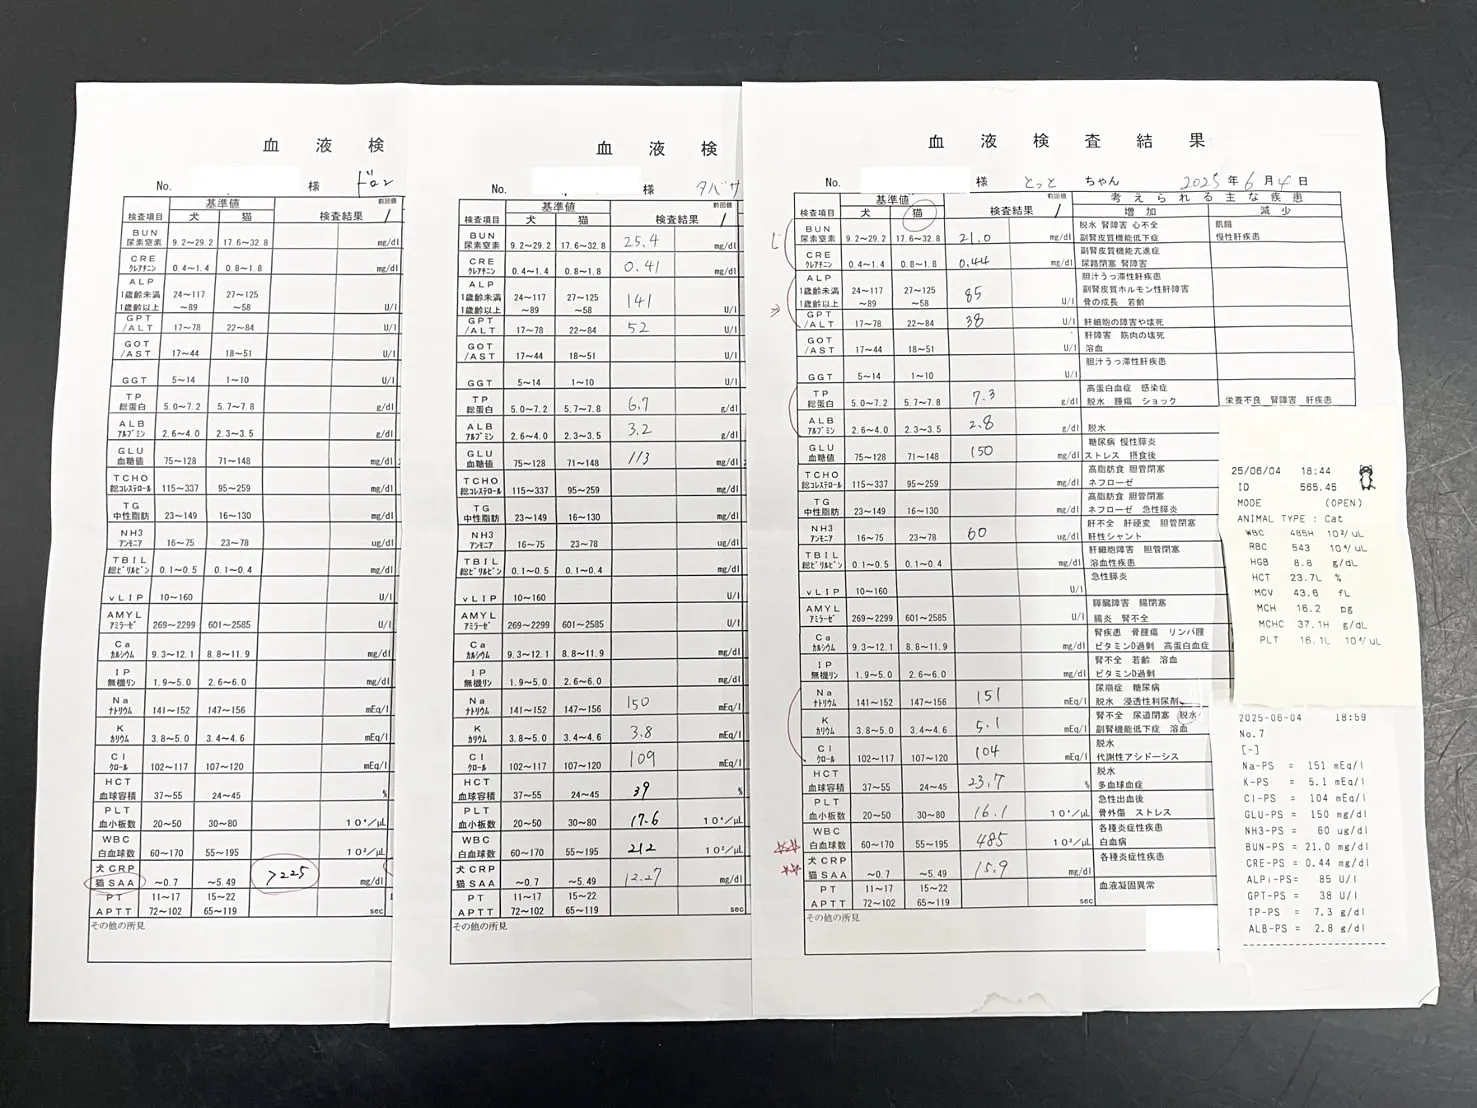 血 液 検
No. 様 ドロン
検査項目 基準値 検査結果 前回値 /
犬 猫
BUN 尿素窒素 9.2~29.2 17.6~32.8 mg/dl
CRE クレアチニン 0.4~1.4 0.8~1.8 mg/dl
ALP
1歳齢未満 24~117 27~125
1歳齢以上 ~89 ~58 U/l
GPT /ALT 17~78 22~84 U/l
GOT /AST 17~44 18~51 U/l
GGT 5~14 1~10 U/l
TP 総蛋白 5.0~7.2 5.7~7.8 g/dl
ALB アルブミン 2.6~4.0 2.3~3.5 g/dl
GLU 血糖値 75~128 71~148 mg/dl
TCHO 総コレステロール 115~337 95~259 mg/dl
TG 中性脂肪 23~149 16~130 mg/dl
NH3 アンモニア 16~75 23~78 ug/dl
TBIL 総ビリルビン 0.1~0.5 0.1~0.4 mg/dl
vLIP 10~160 U/l
AMYL アミラーゼ 269~2299 601~2585 U/l
Ca カルシウム 9.3~12.1 8.8~11.9 mg/dl
IP 無機リン 1.9~5.0 2.6~6.0 mg/dl
Na ナトリウム 141~152 147~156 mEq/l
K カリウム 3.8~5.0 3.4~4.6 mEq/l
Cl クロール 102~117 107~120 mEq/l
HCT 血球容積 37~55 24~45 %
PLT 血小板数 20~50 30~80 10⁴/μL
WBC 白血球数 60~170 55~195 10²/μL
犬CRP 猫SAA ~0.7 ~5.49 >225 mg/dl
PT 11~17 15~22
APTT 72~102 65~119 sec
その他の所見
血 液 検
No. 様 タバサ
検査項目 基準値 検査結果 前回値 /
犬 猫
BUN 尿素窒素 9.2~29.2 17.6~32.8 25.4 mg/dl
CRE クレアチニン 0.4~1.4 0.8~1.8 0.41 mg/dl
ALP
1歳齢未満 24~117 27~125 141
1歳齢以上 ~89 ~58 U/l
GPT /ALT 17~78 22~84 52 U/l
GOT /AST 17~44 18~51 U/l
GGT 5~14 1~10 U/l
TP 総蛋白 5.0~7.2 5.7~7.8 6.7 g/dl
ALB アルブミン 2.6~4.0 2.3~3.5 3.2 g/dl
GLU 血糖値 75~128 71~148 113 mg/dl
TCHO 総コレステロール 115~337 95~259 mg/dl
TG 中性脂肪 23~149 16~130 mg/dl
NH3 アンモニア 16~75 23~78 ug/dl
TBIL 総ビリルビン 0.1~0.5 0.1~0.4 mg/dl
vLIP 10~160 U/l
AMYL アミラーゼ 269~2299 601~2585 U/l
Ca カルシウム 9.3~12.1 8.8~11.9 mg/dl
IP 無機リン 1.9~5.0 2.6~6.0 mg/dl
Na ナトリウム 141~152 147~156 150 mEq/l
K カリウム 3.8~5.0 3.4~4.6 3.8 mEq/l
Cl クロール 102~117 107~120 109 mEq/l
HCT 血球容積 37~55 24~45 39 %
PLT 血小板数 20~50 30~80 17.6 10⁴/μL
WBC 白血球数 60~170 55~195 212 10²/μL
犬CRP 猫SAA ~0.7 ~5.49 12.27 mg/dl
PT 11~17 15~22
APTT 72~102 65~119 sec
その他の所見
血 液 検 査 結 果
No. 様 とっと ちゃん 2025 年 6 月 4 日
検査項目 基準値 検査結果 前回値 / 考えられる主な疾患
犬 猫 増 加 減 少
BUN 尿素窒素 9.2~29.2 17.6~32.8 21.0 mg/dl 脱水 腎障害 心不全 副腎皮質機能低下症 飢餓 慢性肝疾患
CRE クレアチニン 0.4~1.4 0.8~1.8 0.44 mg/dl 副腎皮質機能亢進症 尿路閉塞 腎障害
ALP 胆汁うっ滞性肝疾患
1歳齢未満 24~117 27~125 85 副腎皮質ホルモン性肝障害
1歳齢以上 ~89 ~58 U/l 骨の成長 若齢
GPT /ALT 17~78 22~84 38 U/l 肝細胞の障害や壊死
GOT /AST 17~44 18~51 U/l 肝障害 筋肉の壊死 溶血
GGT 5~14 1~10 U/l 胆汁うっ滞性肝疾患
TP 総蛋白 5.0~7.2 5.7~7.8 7.3 g/dl 高蛋白血症 感染症 脱水 腫瘍 ショック 栄養不良 腎障害 肝疾患
ALB アルブミン 2.6~4.0 2.3~3.5 2.8 g/dl 脱水
GLU 血糖値 75~128 71~148 150 mg/dl 糖尿病 慢性膵炎 ストレス 摂食後
TCHO 総コレステロール 115~337 95~259 mg/dl 高脂肪食 胆管閉塞 ネフローゼ
TG 中性脂肪 23~149 16~130 mg/dl 高脂肪食 胆管閉塞 ネフローゼ 急性膵炎
NH3 アンモニア 16~75 23~78 60 ug/dl 肝不全 肝硬変 胆管閉塞 肝性シャント
TBIL 総ビリルビン 0.1~0.5 0.1~0.4 mg/dl 肝細胞障害 胆管閉塞 溶血性疾患
vLIP 10~160 U/l 急性膵炎
AMYL アミラーゼ 269~2299 601~2585 U/l 膵臓障害 腸閉塞 腸炎 腎不全
Ca カルシウム 9.3~12.1 8.8~11.9 mg/dl 腎疾患 骨腫瘍 リンパ腫 ビタミンD過剰 高蛋白血症
IP 無機リン 1.9~5.0 2.6~6.0 mg/dl 腎不全 若齢 溶血 ビタミンD過剰
Na ナトリウム 141~152 147~156 151 mEq/l 尿崩症 糖尿病 脱水 浸透性利尿剤
K カリウム 3.8~5.0 3.4~4.6 5.1 mEq/l 腎不全 尿道閉塞 脱水 副腎機能低下症 溶血
Cl クロール 102~117 107~120 104 mEq/l 脱水 代謝性アシドーシス
HCT 血球容積 37~55 24~45 23.7 % 脱水 多血球血症
PLT 血小板数 20~50 30~80 16.1 10⁴/μL 急性出血後 骨外傷 ストレス
WBC 白血球数 60~170 55~195 485 10²/μL 各種炎症性疾患 白血病
犬CRP 猫SAA ~0.7 ~5.49 15.9 mg/dl 各種炎症性疾患
PT 11~17 15~22 血液凝固異常
APTT 72~102 65~119 sec
その他の所見
25/06/04 18:44
ID 565.45
MODE (OPEN)
ANIMAL TYPE : Cat
WBC 485H 10²/uL
RBC 543 10⁴/uL
HGB 8.8 g/dL
HCT 23.7L %
MCV 43.6 fL
MCH 16.2 pg
MCHC 37.1H g/dL
PLT 16.1L 10⁴/uL
2025-06-04 18:59
No.7
[-]
Na-PS = 151 mEq/l
K-PS = 5.1 mEq/l
Cl-PS = 104 mEq/l
GLU-PS = 150 mg/dl
NH3-PS = 60 ug/dl
BUN-PS = 21.0 mg/dl
CRE-PS = 0.44 mg/dl
ALPi-PS= 85 U/l
GPT-PS = 38 U/l
TP-PS = 7.3 g/dl
ALB-PS = 2.8 g/dl